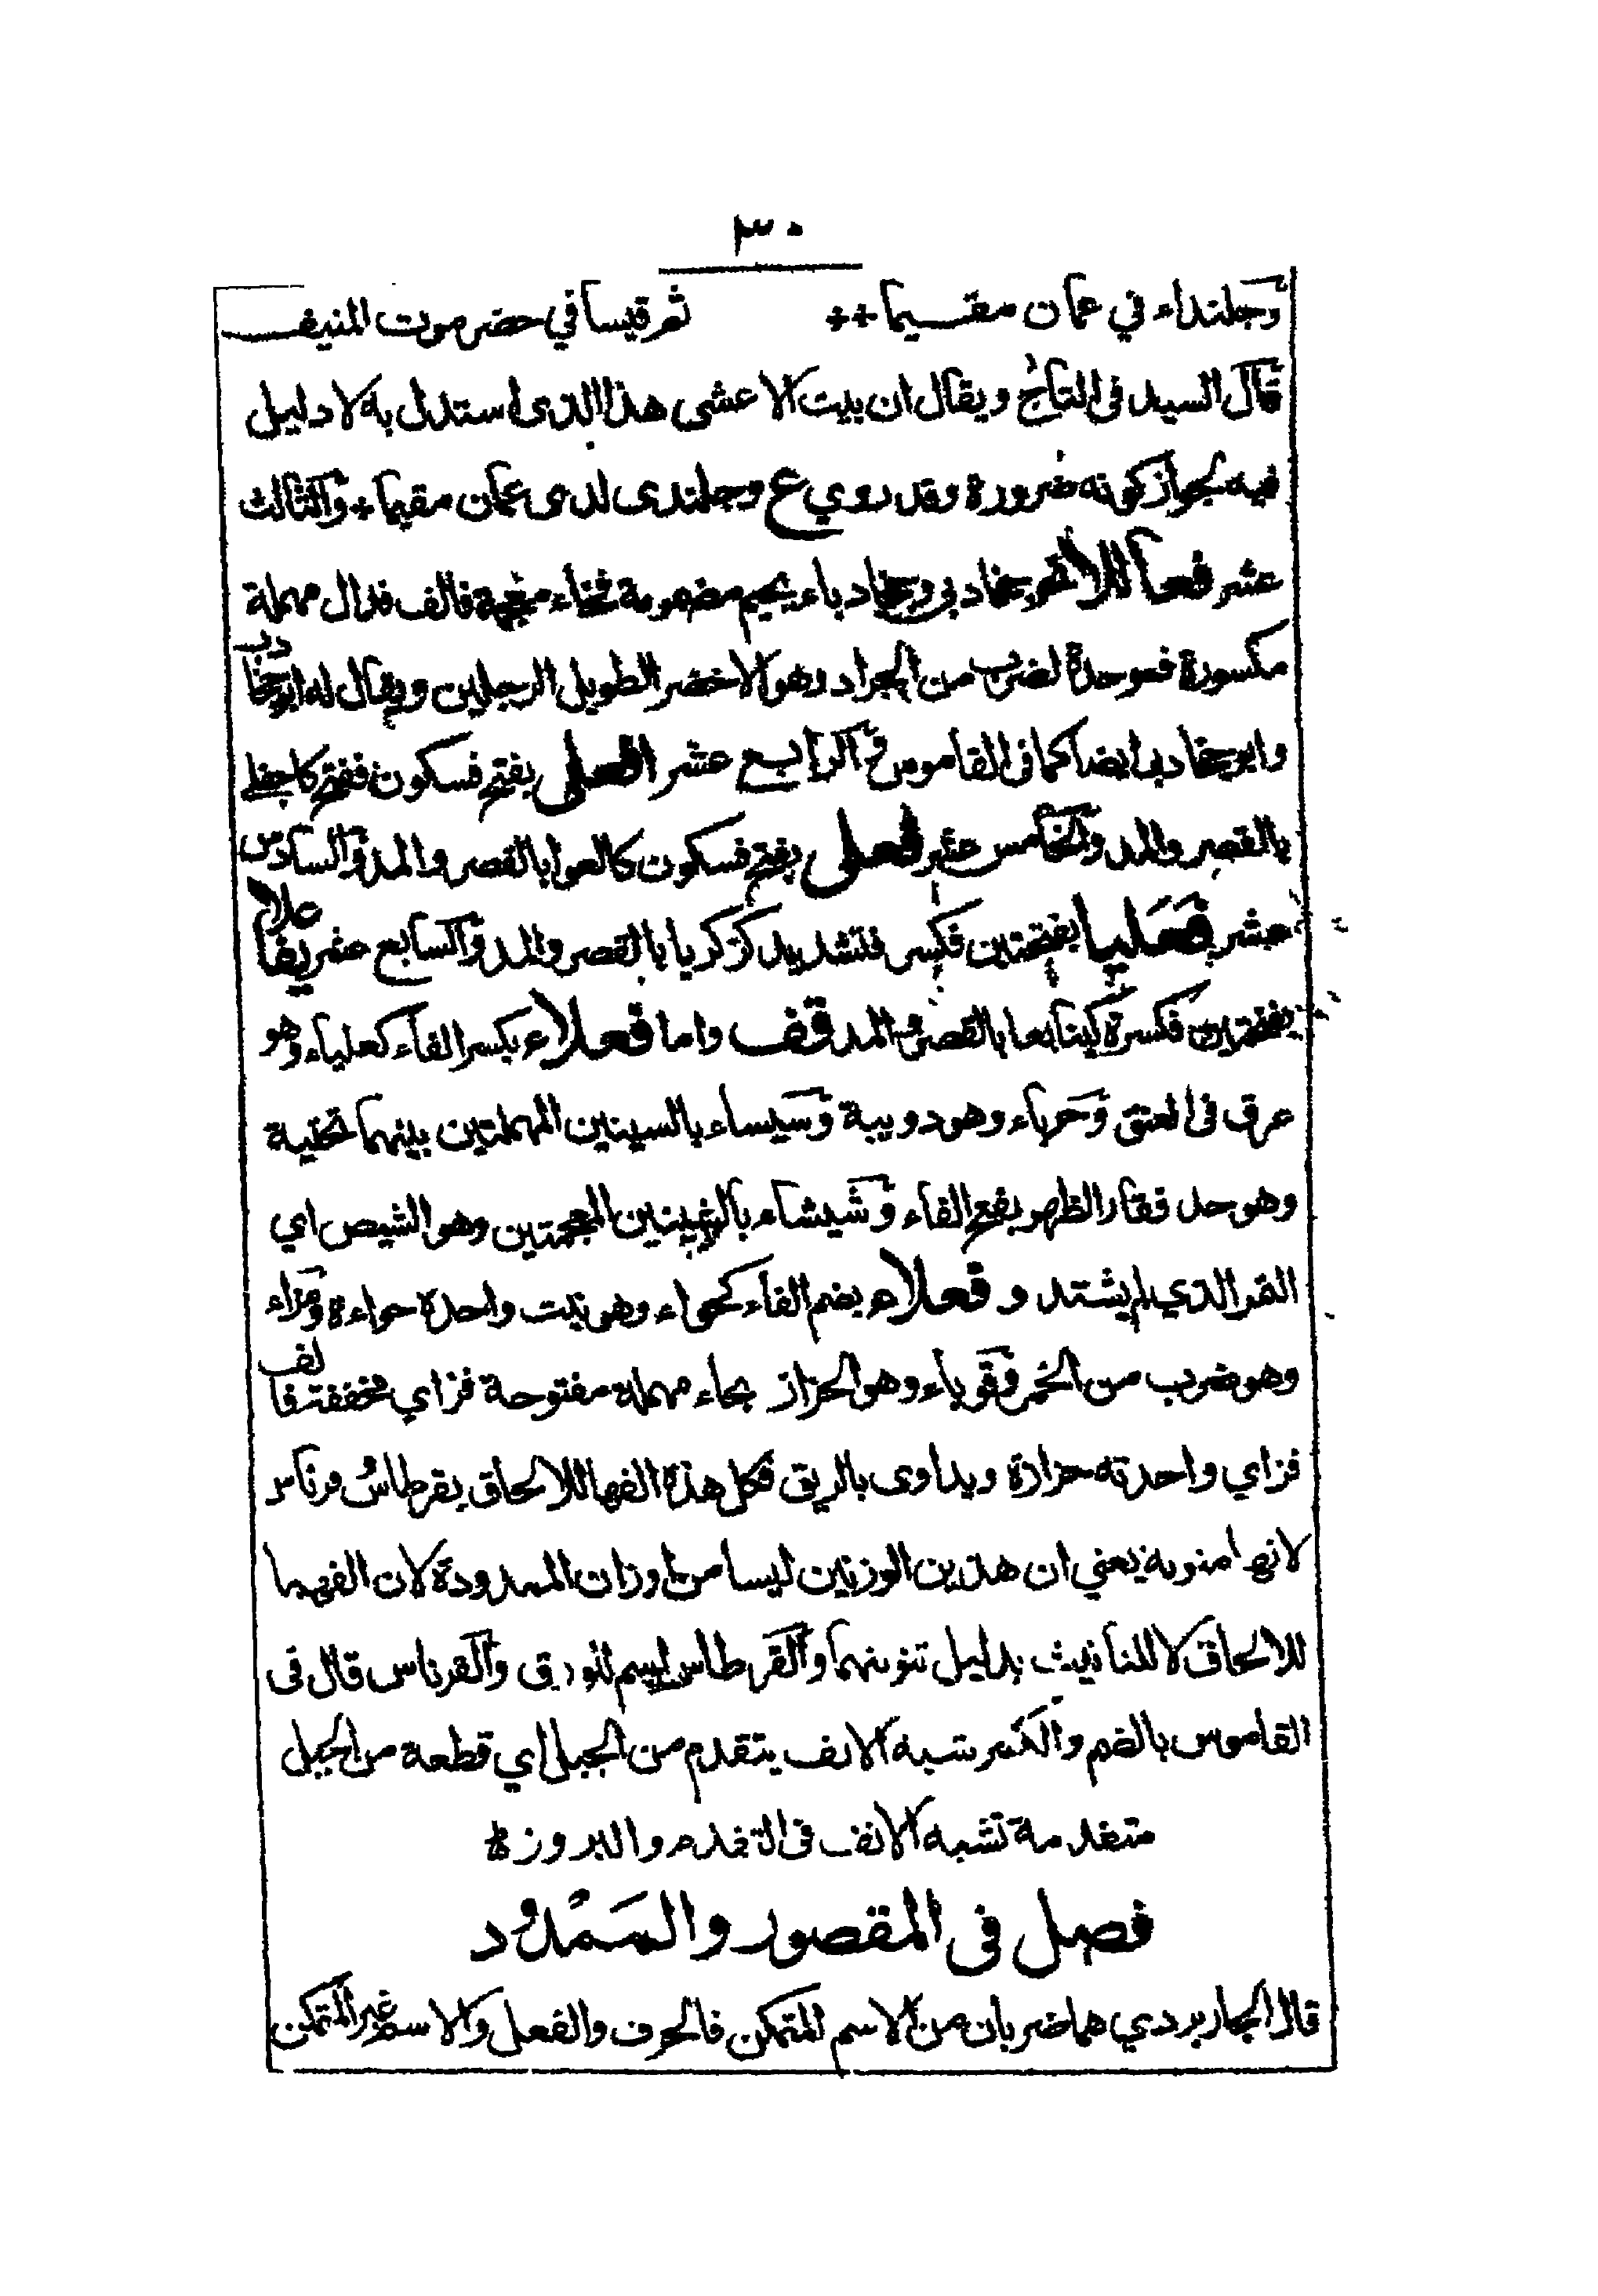 ٣٠
وجلنداء في عمان مقيما ** ثم قيسا في حضرموت المنيف
قال السيد فى التاج ويقال ان بيت الاعشى هذا الذى استدل به لا دليل
فيه لجواز كونه ضرورة وقد روي ع وجلندى لدى عمان مقيما * والثالث
عشر فعاللا نحو جخادبى وجخادباء بجيم مضمومة فخاء معجمة فالف فدال مهملة
مكسورة فموحدة لضرب من الجراد وهو الاخضر الطويل الرجلين ويقال له ابو جخادب
وابو جخادبى ايضا كما فى القاموس والرابع عشر افعلى بفتح فسكون ففتح كاجفلى
بالقصر والمد والخامس عشر فعلى بفتح فسكون كالعوا بالقصر والمد والسادس
عشر فعليا بفتحتين فكسر فتشديد كزكريا بالقصر والمد والسابع عشر يفاعلا
بفتحتين فكسرة كينابعا بالقصر والمد قف واما فعلاء بكسر الفاء كعلباء وهو
عرق فى العنق وحرباء وهو دويبة وسيساء بالسينين المهملتين بينهما تحتية
وهو حد فقار الظهر بفتح الفاء وشيشاء بالشينين المعجمتين وهو الشيص اي
التمر الذي لم يشتد وفعلاء بضم الفاء كحواء وهو نبت واحدة حواءة ومزاء
وهو ضرب من الخمر وقوباء وهو الحزاز بحاء مهملة مفتوحة فزاي مخففة فالف
فزاي واحدته حزازة ويداوى بالريق فكل هذه الفها للالحاق بقرطاس وقرناس
لانها منونة يعني ان هذين الوزنين ليسا من اوزان الممدودة لان الفهما
للالحاق لا للتأنيث بدليل تنوينهما والقرطاس اسم للورق والقرناس قال فى
القاموس بالضم والكسر شبه الانف يتقدم من الجبل اي قطعة من الجبل
متقدمة تشبه الانف فى التقدم والبروز *
فصل فى المقصور والممدود
قال الجاربردي هما ضربان من الاسم المتمكن فالحرف والفعل والاسم غير المتمكن